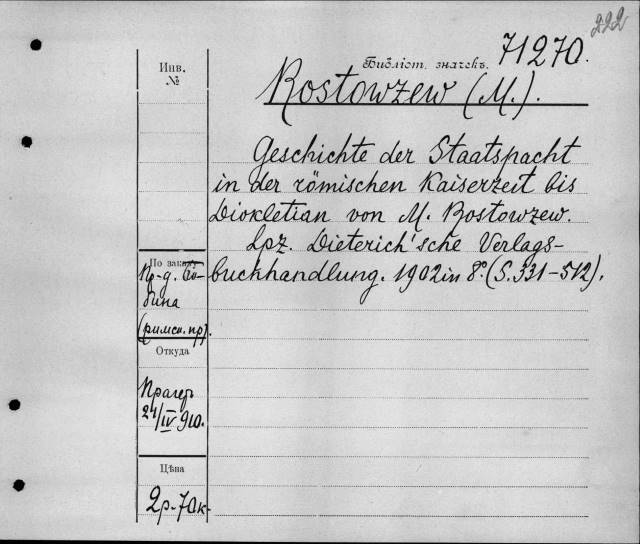 222
Библіот. значекъ. 71270.
Инв.
№
Rostowzew (M.).
Geschichte der Staatspacht
in der römischen Kaiserzeit bis
Diokletian von M. Rostowzew.
Lpz. Dieterich'sche Verlags-
buchhandlung. 1902 in 8º. (S. 331-512).
По заказу
Пр-д.
бина
(римск. пр).
Откуда
Прагеръ
21/IV 910.
Цѣна
2р-70к.